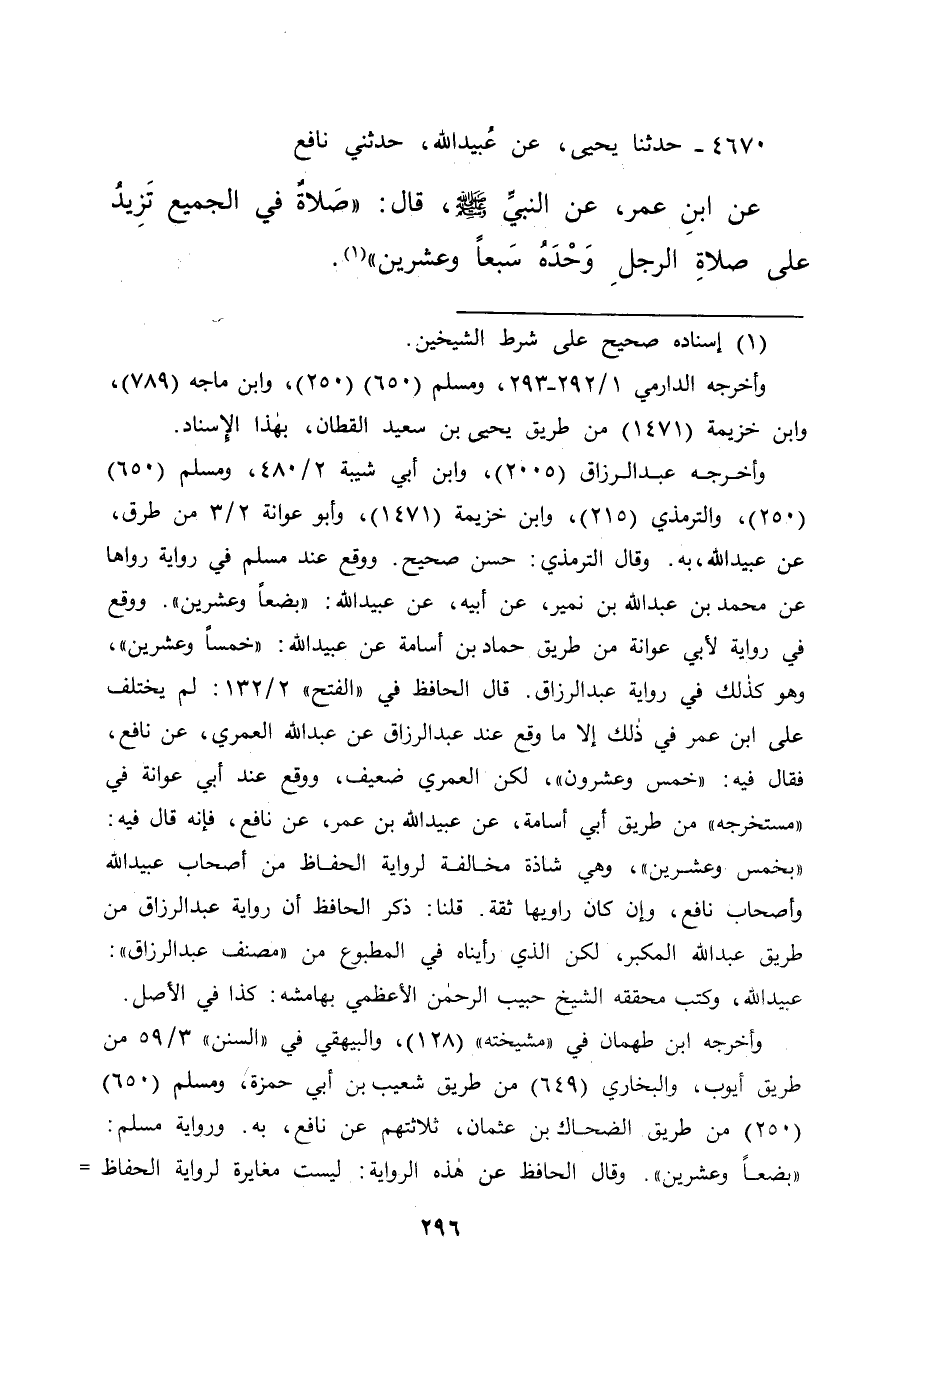 ٤٦٧٠ ـ حدثنا يحيى، عن عُبيدالله، حدثني نافع
عن ابنِ عمر، عن النبيِّ ﷺ، قال: «صَلاةٌ في الجميع تَزِيدُ
على صلاةِ الرجلِ وَحْدَهُ سَبعاً وعشرين»(١).
(١) إسناده صحيح على شرط الشيخين.
وأخرجه الدارمي ٢٩٢/١-٢٩٣، ومسلم (٦٥٠) (٢٥٠)، وابن ماجه (٧٨٩)،
وابن خزيمة (١٤٧١) من طريق يحيى بن سعيد القطان، بهٰذا الإسناد.
وأخرجه عبدالرزاق (٢٠٠٥)، وابن أبي شيبة ٤٨٠/٢، ومسلم (٦٥٠)
(٢٥٠)، والترمذي (٢١٥)، وابن خزيمة (١٤٧١)، وأبو عوانة ٣/٢ من طرق،
عن عبيدالله، به. وقال الترمذي: حسن صحيح. ووقع عند مسلم في رواية رواها
عن محمد بن عبدالله بن نمير، عن أبيه، عن عبيدالله: «بضعاً وعشرين». ووقع
في رواية لأبي عوانة من طريق حماد بن أسامة عن عبيدالله: «خمساً وعشرين»،
وهو كذٰلك في رواية عبدالرزاق. قال الحافظ في «الفتح» ١٣٢/٢: لم يختلف
على ابن عمر في ذٰلك إلا ما وقع عند عبدالرزاق عن عبدالله العمري، عن نافع،
فقال فيه: «خمس وعشرون»، لكن العمري ضعيف، ووقع عند أبي عوانة في
«مستخرجه» من طريق أبي أسامة، عن عبيدالله بن عمر، عن نافع، فإنه قال فيه:
«بخمس وعشرين»، وهي شاذة مخالفة لرواية الحفاظ من أصحاب عبيدالله
وأصحاب نافع، وإن كان راويها ثقة. قلنا: ذكر الحافظ أن رواية عبدالرزاق من
طريق عبدالله المكبر، لكن الذي رأيناه في المطبوع من «مصنف عبدالرزاق»:
عبيدالله، وكتب محققه الشيخ حبيب الرحمٰن الأعظمي بهامشه: كذا في الأصل.
وأخرجه ابن طهمان في «مشيخته» (١٢٨)، والبيهقي في «السنن» ٥٩/٣ من
طريق أيوب، والبخاري (٦٤٩) من طريق شعيب بن أبي حمزة، ومسلم (٦٥٠)
(٢٥٠) من طريق الضحاك بن عثمان، ثلاثتهم عن نافع، به. ورواية مسلم:
«بضعاً وعشرين». وقال الحافظ عن هٰذه الرواية: ليست مغايرة لرواية الحفاظ =
٢٩٦